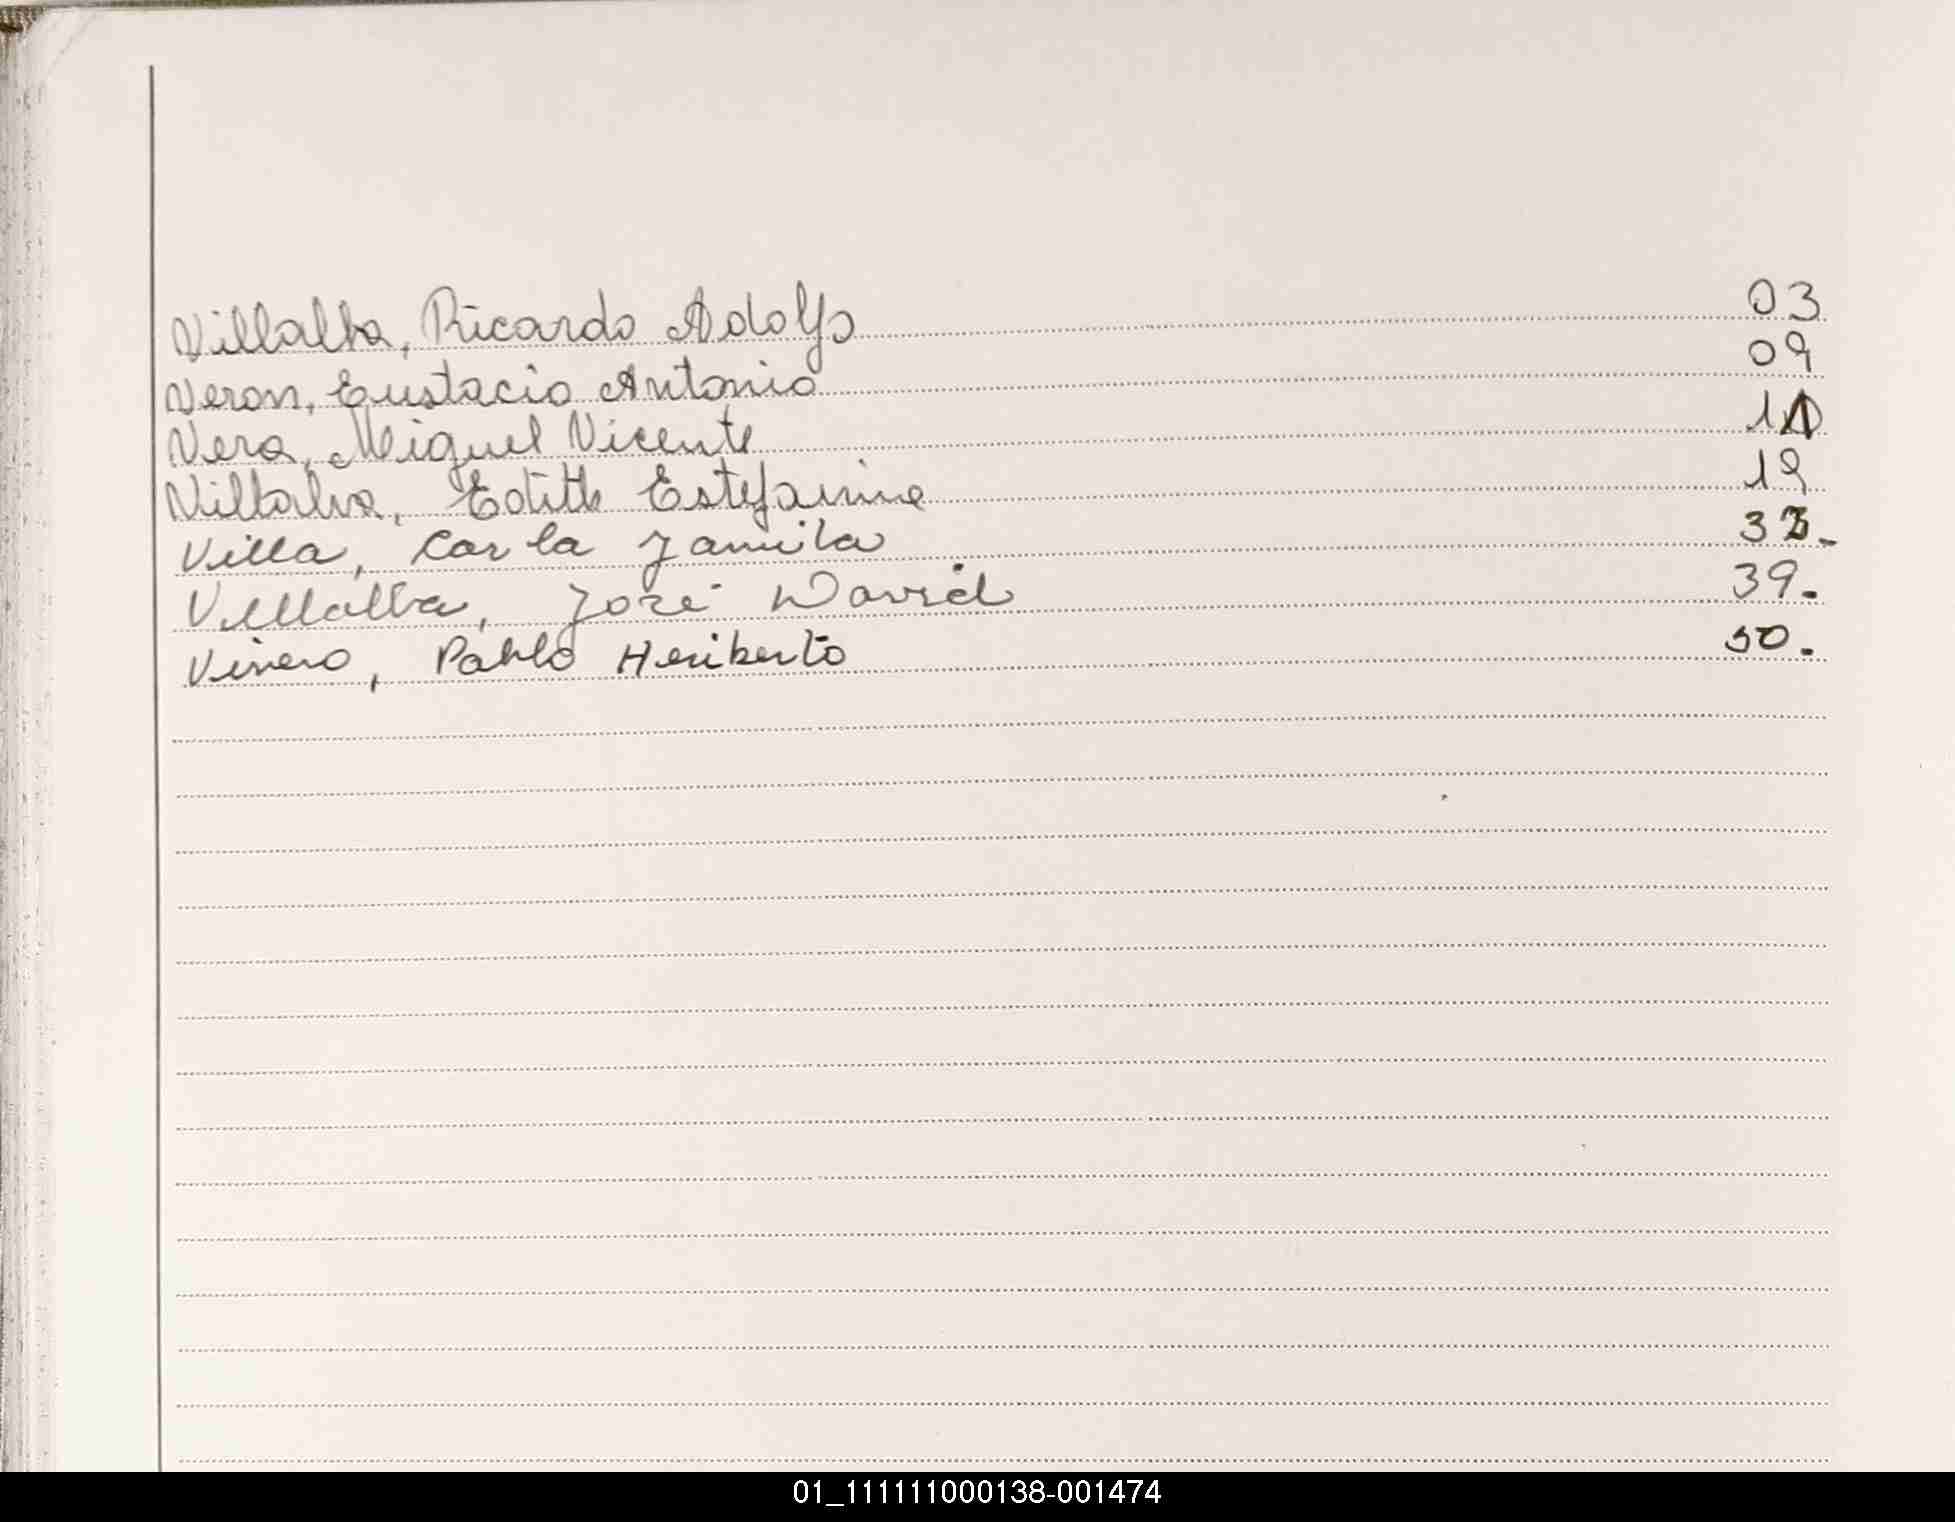 Villalba, Ricardo Adolfo 03
Veron, Eustacio Antonio 09
Vera, Miguel Vicente
Villalva, Edith Estefanina 19
Villa, Carla Jamila
Villalba, José David 39.
Vivero, Pablo Heriberto 50.
01_111111000138-001474